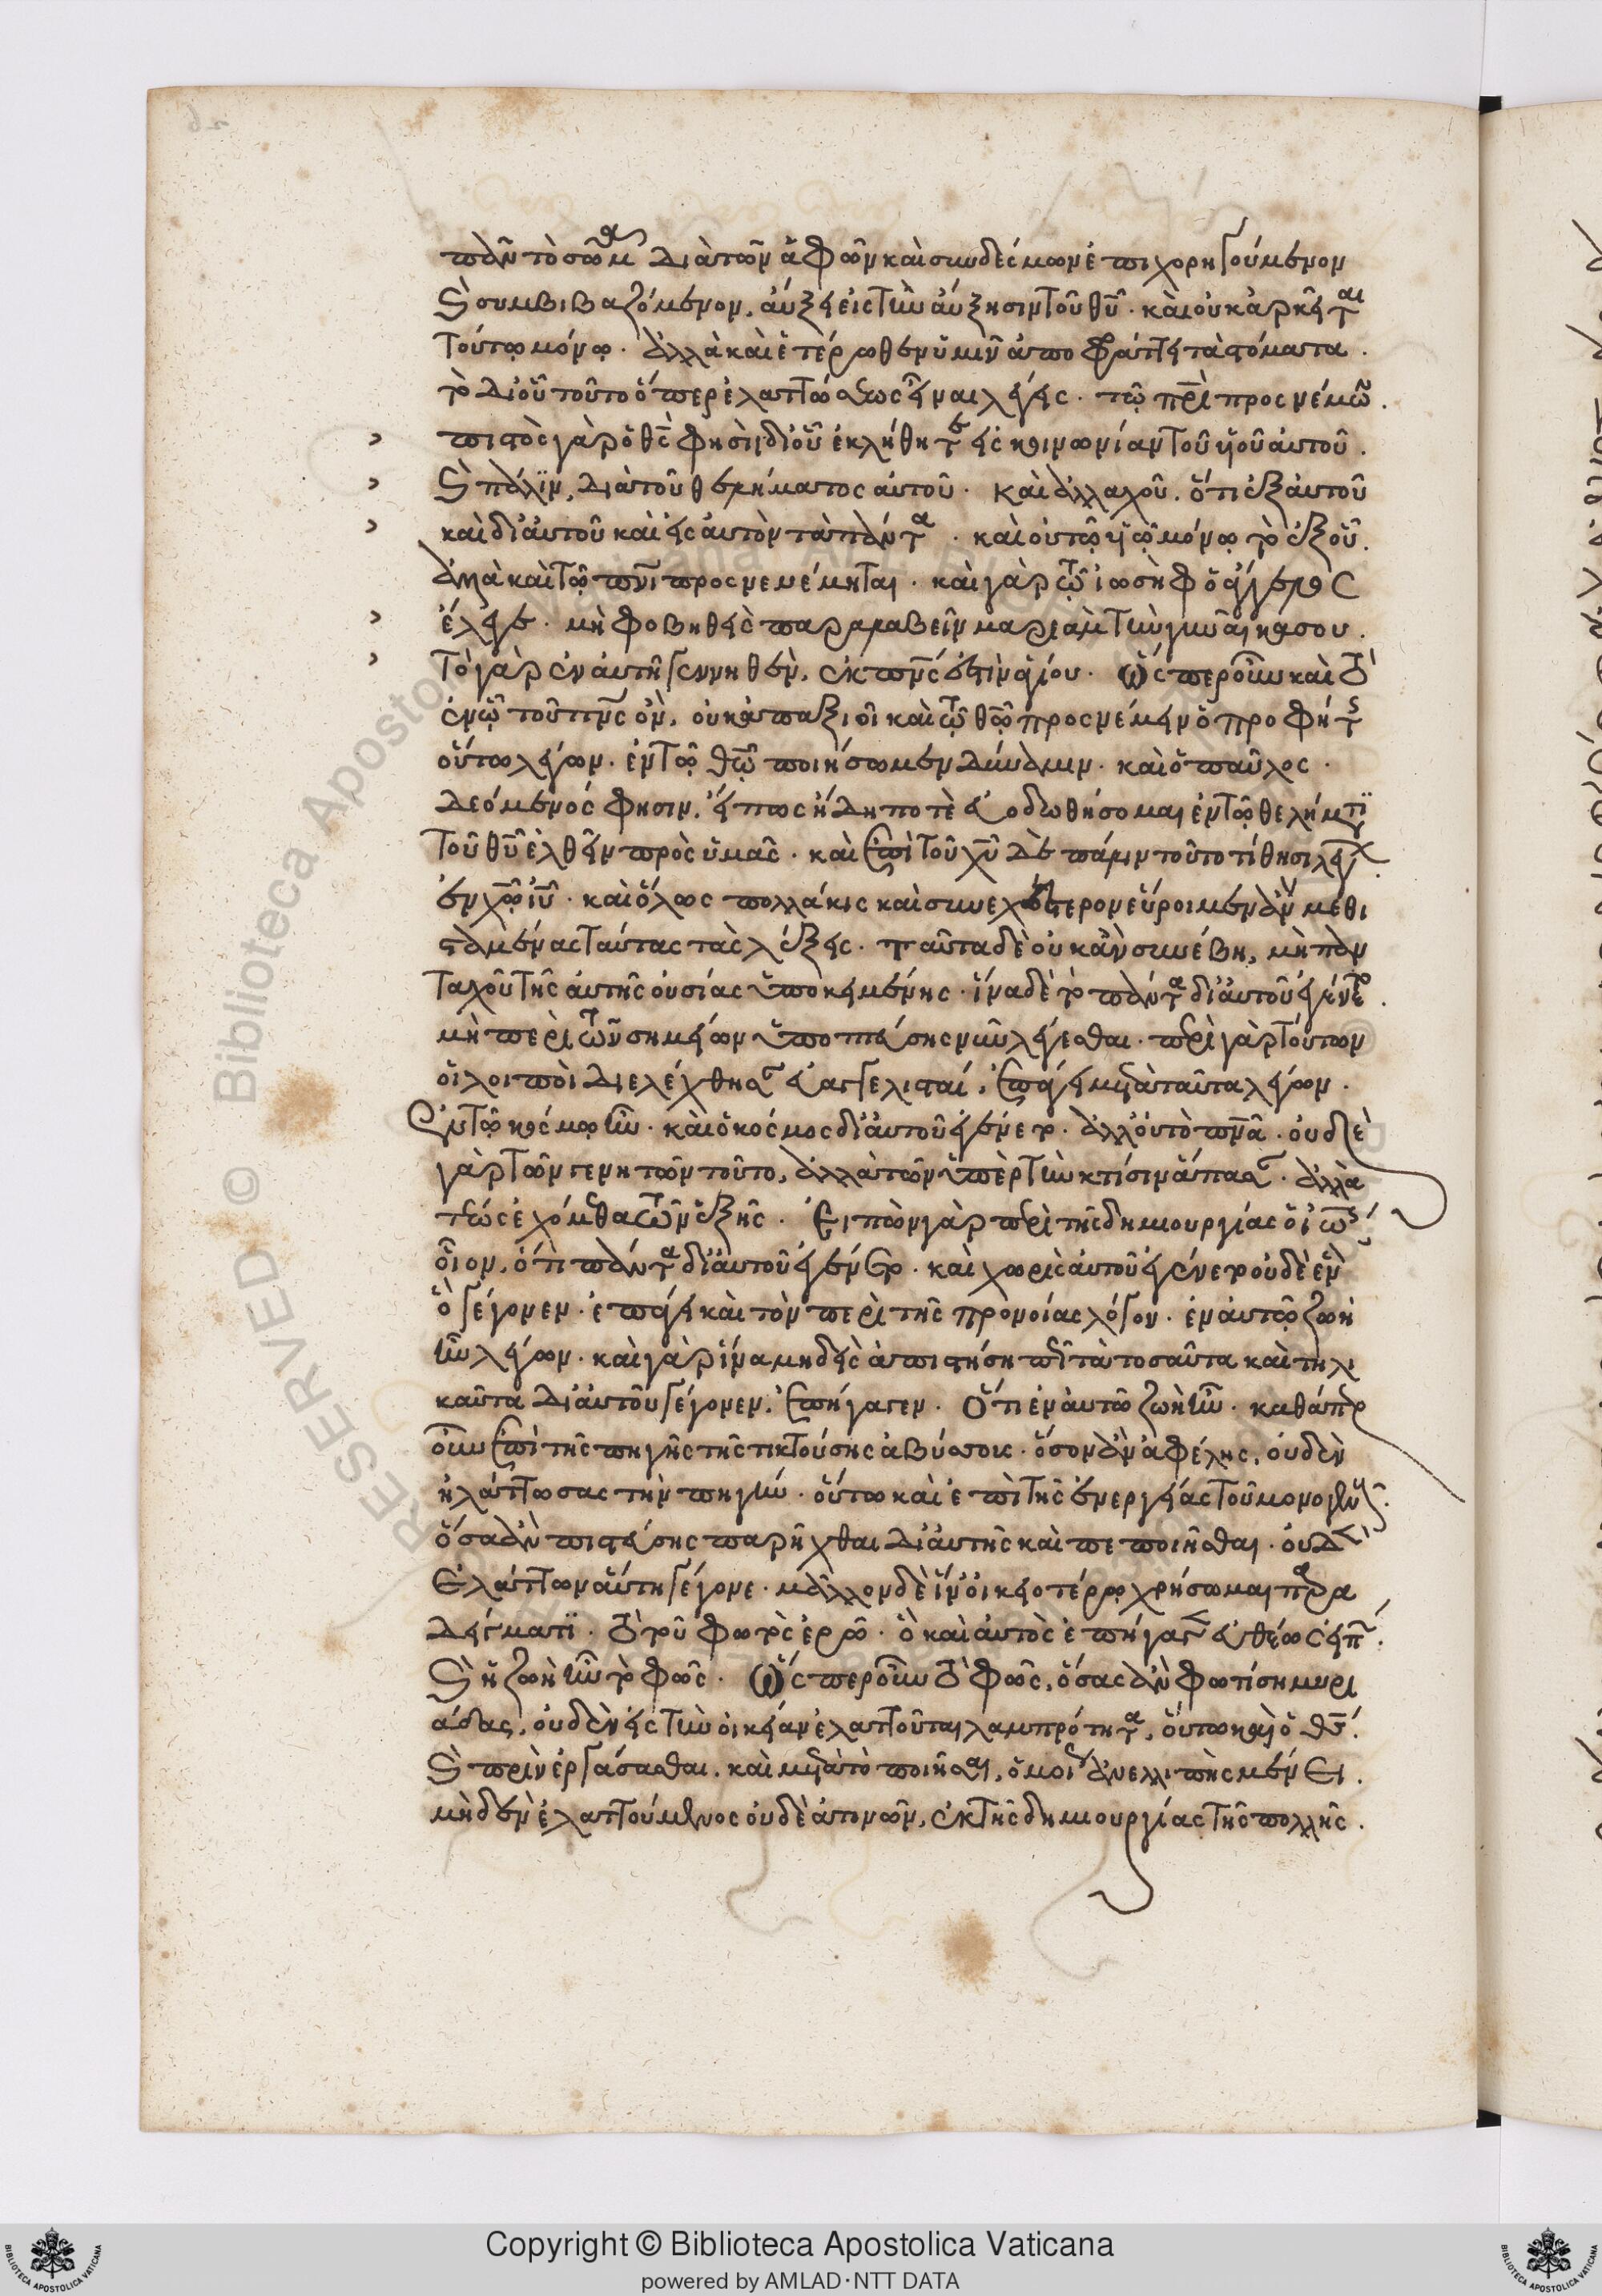 πᾶν τὸ σῶμα διὰ τῶν ἁφῶν καὶ συνδέσμων ἐπιχορηγούμενον
καὶ συμβιβαζόμενον, αὔξει εἰς τὴν αὔξησιν τοῦ θυ̅. καὶ οὐκ ἀρκεῖται
τούτῳ μόνῳ. ἀλλὰ καὶ ἑτέρωθεν ὑμῖν ἀποφράττει τὰ στόματα.
τὸ δι’ οὗ τοῦτο ὅπερ ἐλαττώσεως εἶναι λέγεις. τῷ πρ̅ι προσνέμων.
πιστὸς γὰρ ὁ θς̅ φησὶ, δι’ οὗ ἐκλήθητε εἰς κοινωνίαν τοῦ υἱοῦ αὐτοῦ.
καὶ πάλιν, διὰ τοῦ θελήματος αὐτοῦ. καὶ ἀλλαχοῦ. ὅτι ἐξ αὐτοῦ
καὶ δι’ αὐτοῦ καὶ εἰς αὐτὸν τὰ πάντα. καὶ οὐ τῷ υἱῷ μόνῳ τὸ ἐξ οὗ.
ἀλλὰ καὶ τῷ πνι̅ προσνενέμηται. καὶ γὰρ τῷ ἰωσὴφ ὁ ἄγγελος
ἔλεγε. μὴ φοβηθεὶς παραλαβεῖν μαριὰμ τὴν γυναῖκά σου.
τὸ γὰρ ἐν αὐτῇ γεννηθὲν, ἐκ πνς̅ ἐστὶν ἁγίου. ὥσπερ οὖν καὶ τὸ
ἐν ᾧ τοῦ πνς̅ ὂν, οὐκ ἀπαξιοῖ καὶ τῷ θῶ̅ προσνέμειν ὁ προφήτης
οὕτω λέγων. ἐν τῷ θῶ̅ ποιήσωμεν δύναμιν. καὶ ὁ παῦλος.
δεόμενός φησιν, εἴπως ἤδη ποτὲ εὐοδωθήσομαι ἐν τῷ θελήματι
τοῦ θυ̅ ἐλθεῖν πρὸς ὑμᾶς. καὶ ἐπὶ τοῦ χυ̅ δὲ πάλιν τοῦτο τίθησι λέγων.
ἐν χῶ̅ ιυ̅. καὶ ὅλως πολλάκις καὶ συνεχέστερον εὕροιμεν ἂν μεθι
σταμένας ταύτας τὰς λέξεις. ταῦτα δὲ οὐκ ἂν συνέβη, μὴ παν
ταχοῦ τῆς αὐτῆς οὐσίας ὑποκειμένης. ἵνα δὲ τὸ πάντα δι’ αὐτοῦ ἐγένετο.
μὴ περὶ τῶν σημείων ὑποπτεύσῃς νῦν λέγεσθαι. περὶ γὰρ τούτων
οἱ λοιποὶ διελέχθησαν εὐαγγελισταί, ἐπάγει μετὰ ταῦτα λέγων.
ἐν τῷ κόσμῳ ἦν. καὶ ὁ κόσμος δι’ αὐτοῦ ἐγένετο. ἀλλ’ οὐ τὸ πνα̅. οὐδὲ
γὰρ τῶν γενητῶν τοῦτο, ἀλλὰ τῶν ὑπὲρ τὴν κτίσιν ἅπασαν. ἀλλὰ
τέως ἐχόμεθα τῶν ἑξῆς. Εἰπὼν γὰρ περὶ τῆς δημιουργίας ὁ ἰωάννης
οἷον, ὅτι πάντα δι’ αὐτοῦ ἐγένετο. καὶ χωρὶς αὐτοῦ ἐγένετο οὐδὲ ἓν
ὃ γέγονεν. ἐπάγει καὶ τὸν περὶ τῆς προνοίας λόγον. ἐν αὐτῷ ζωὴ
ἦν λέγων. καὶ γὰρ ἵνα μηδεὶς ἀπιστήσῃ πῶς τὰ τοσαῦτα καὶ τηλι
καῦτα δι’ αὐτοῦ γέγονεν, ἐπήγαγεν. Ὅτι ἐν αὐτῷ ζωὴ ἦν. καθάπερ
οὖν ἐπὶ τῆς πηγῆς τῆς τικτούσης ἀβύσσους. ὅσον ἂν ἀφέλῃς, οὐδὲν
ἠλάττωσας τὴν πηγήν. οὕτω καὶ ἐπὶ τῆς ἐνεργείας τοῦ μονογενοῦς.
ὅσα ἂν πιστεύσῃς παρῆχθαι δι’ αὐτῆς καὶ πεποιῆσθαι. οὐδὲν
ἐλάττων αὕτη γέγονε. μᾶλλον δὲ ἵν’ οἰκειοτέρῳ χρήσωμαι παρα
δείγματι. τὸ τοῦ φωτὸς ἐρῶ. ὃ καὶ αὐτὸς ἐπήγαγεν εὐθέως εἰπών.
καὶ ἡ ζωὴ ἦν τὸ φῶς. ὥσπερ οὖν τὸ φῶς, ὅσας ἂν φωτίσῃ μυρι
άδας, οὐδὲν εἰς τὴν οἰκείαν ἐλαττοῦται λαμπρότητα, οὕτω καὶ ὁ θς̅.
καὶ πρὶν ἐργάσασθαι, καὶ μετὰ τὸ ποιῆσαι, ὁμοίως ἀνελλιπὴς μένει.
μηδὲν ἐλαττούμενος οὐδὲ ἀτονῶν, ἐκ τῆς δημιουργίας τῆς πολλῆς.
RESERVED © Biblioteca Apostolica Vaticana
Copyright © Biblioteca Apostolica Vaticana
powered by AMLAD·NTT DATA